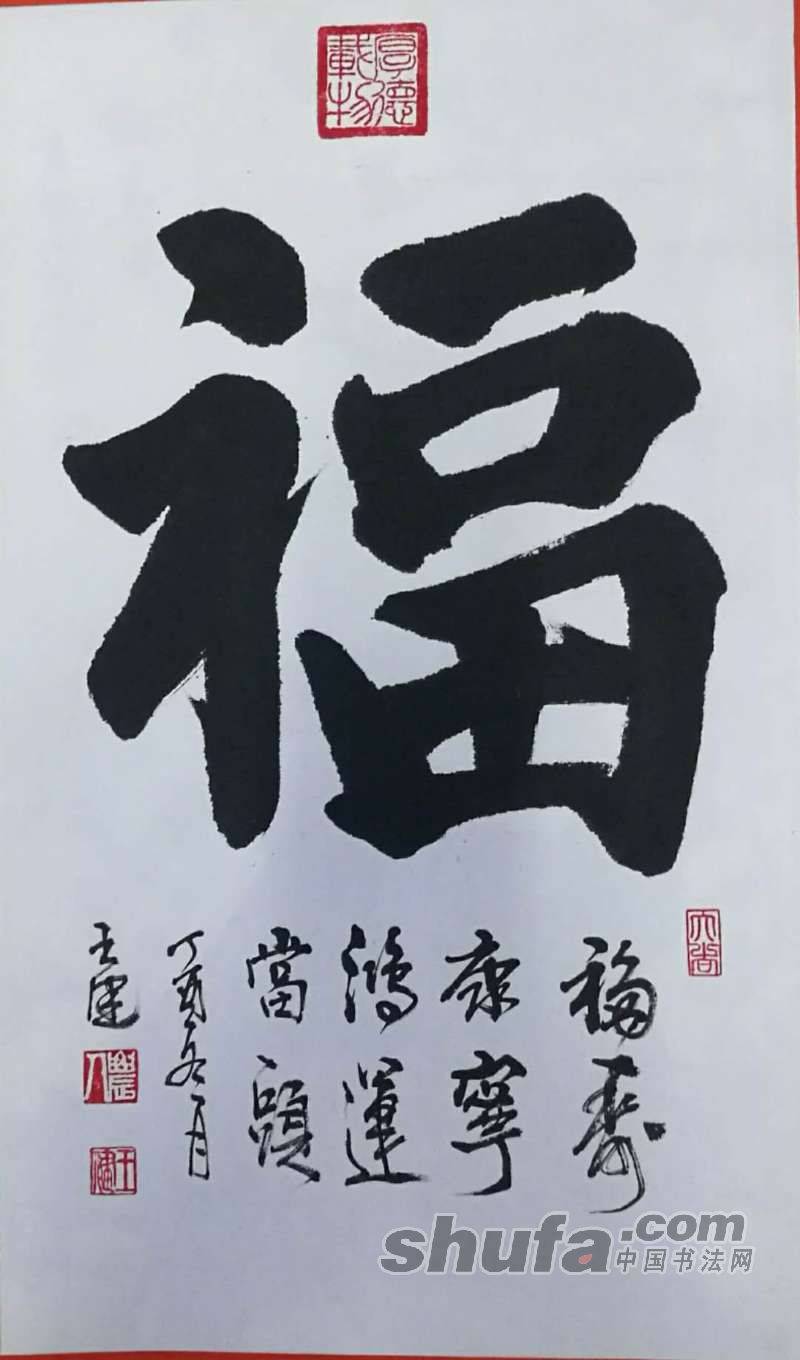 厚德載物
福
福壽
康寧
鴻運
當頭
丁酉冬月
王建
農人
shufa.com
中国书法网